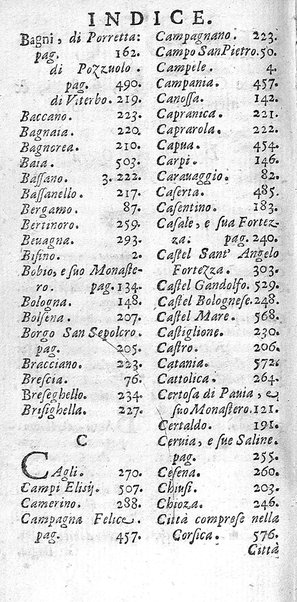 INDICE.
Bagni, di Porretta:
pag. 162.
di Pozzuolo.
pag. 490.
di Viterbo. 219.
Baccano. 223.
Bagnaia. 220.
Bagnorea. 210.
Baia. 503.
Bassano. 3. 222.
Bassanello. 217.
Bergamo. 87.
Bertinoro. 259.
Beuagna. 293.
Bisino. 2.
Bobio, e suo Monaste-
ro. pag. 134.
Bologna. 148.
Bolsena. 207.
Borgo San Sepolcro.
pag. 205.
Bracciano. 223.
Brescia. 76.
Breseghello. 234.
Brisighella. 227.
C
CAgli. 270.
Campi Elisij. 507.
Camerino. 288.
Campagna Felice.
pag. 457.
Campagnano. 223.
Campo San Pietro. 50.
Campele. 4.
Campania. 457.
Canossa. 142.
Capranica. 221.
Caprarola. 222.
Capua. 454.
Carpi. 146.
Carauaggio. 82.
Caserta. 485.
Casentino. 183.
Casale, e sua Fortez-
za. pag. 240.
Castel Sant' Angelo
Fortezza. 303.
Castel Gandolfo. 529.
Castel Bolognese. 248.
Castel Mare. 568.
Castiglione. 230.
Castro. 206.
Catania. 572.
Cattolica. 264.
Certosa di Pauia, e
suo Monastero. 121.
Certaldo. 191.
Ceruia, e sue Saline.
pag. 255.
Cesena. 260.
Chiusi. 203.
Chioza. 246.
Città comprese nella
Corsica. 576.
Città